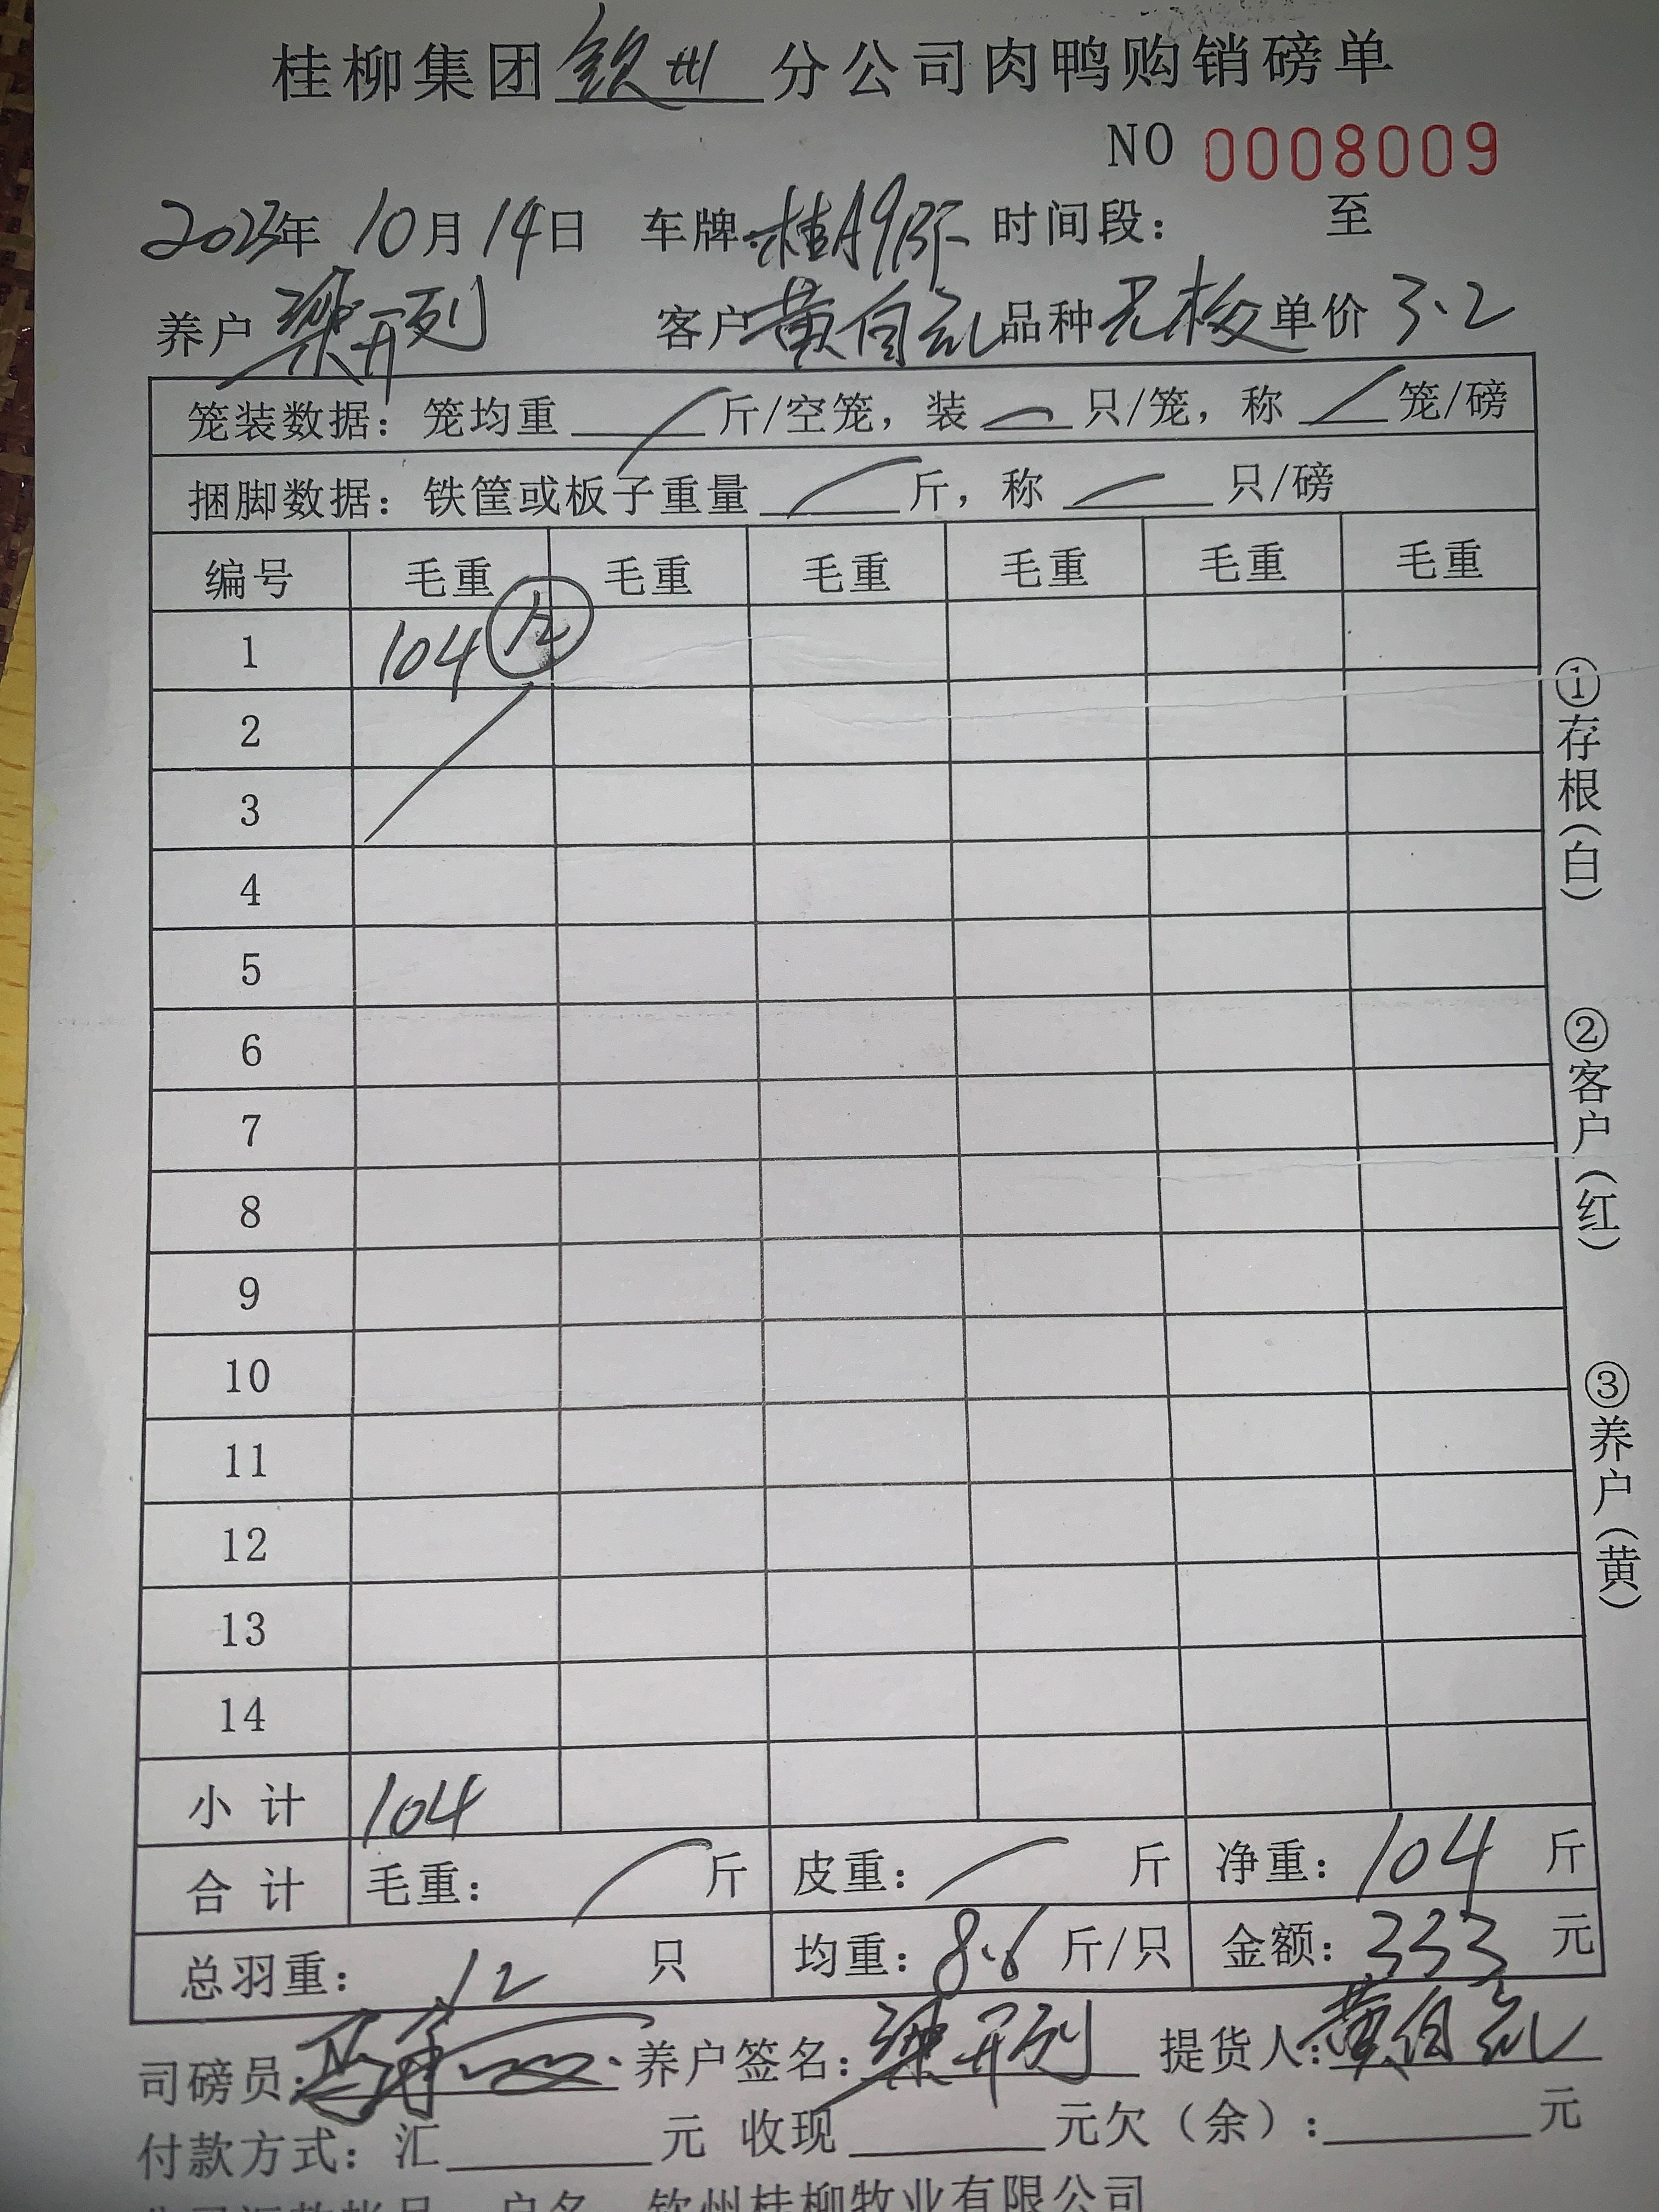 桂柳集团钦州分公司肉鸭购销磅单
NO 0008009
2023年 10月14日 车牌: 桂A9 时间段: 至
养户 梁开列 客户 黄自 品种 单价 3.2
笼装数据: 笼均重 / 斤/空笼, 装 / 只/笼, 称 / 笼/磅
捆脚数据: 铁筐或板子重量 / 斤, 称 / 只/磅
编号 毛重 毛重 毛重 毛重 毛重 毛重
1 104 ⑫
2
3
4
5
6
7
8
9
10
11
12
13
14
小计 104
合计 毛重: / 斤 皮重: / 斤 净重: 104 斤
总羽重: 12 只 均重: 8.6 斤/只 金额: 333 元
司磅员: 养户签名: 梁开列 提货人: 黄自
付款方式: 汇 元 收现 元欠(余): 元
户名 钦州桂柳牧业有限公司
①存根(白)
②客户(红)
③养户(黄)